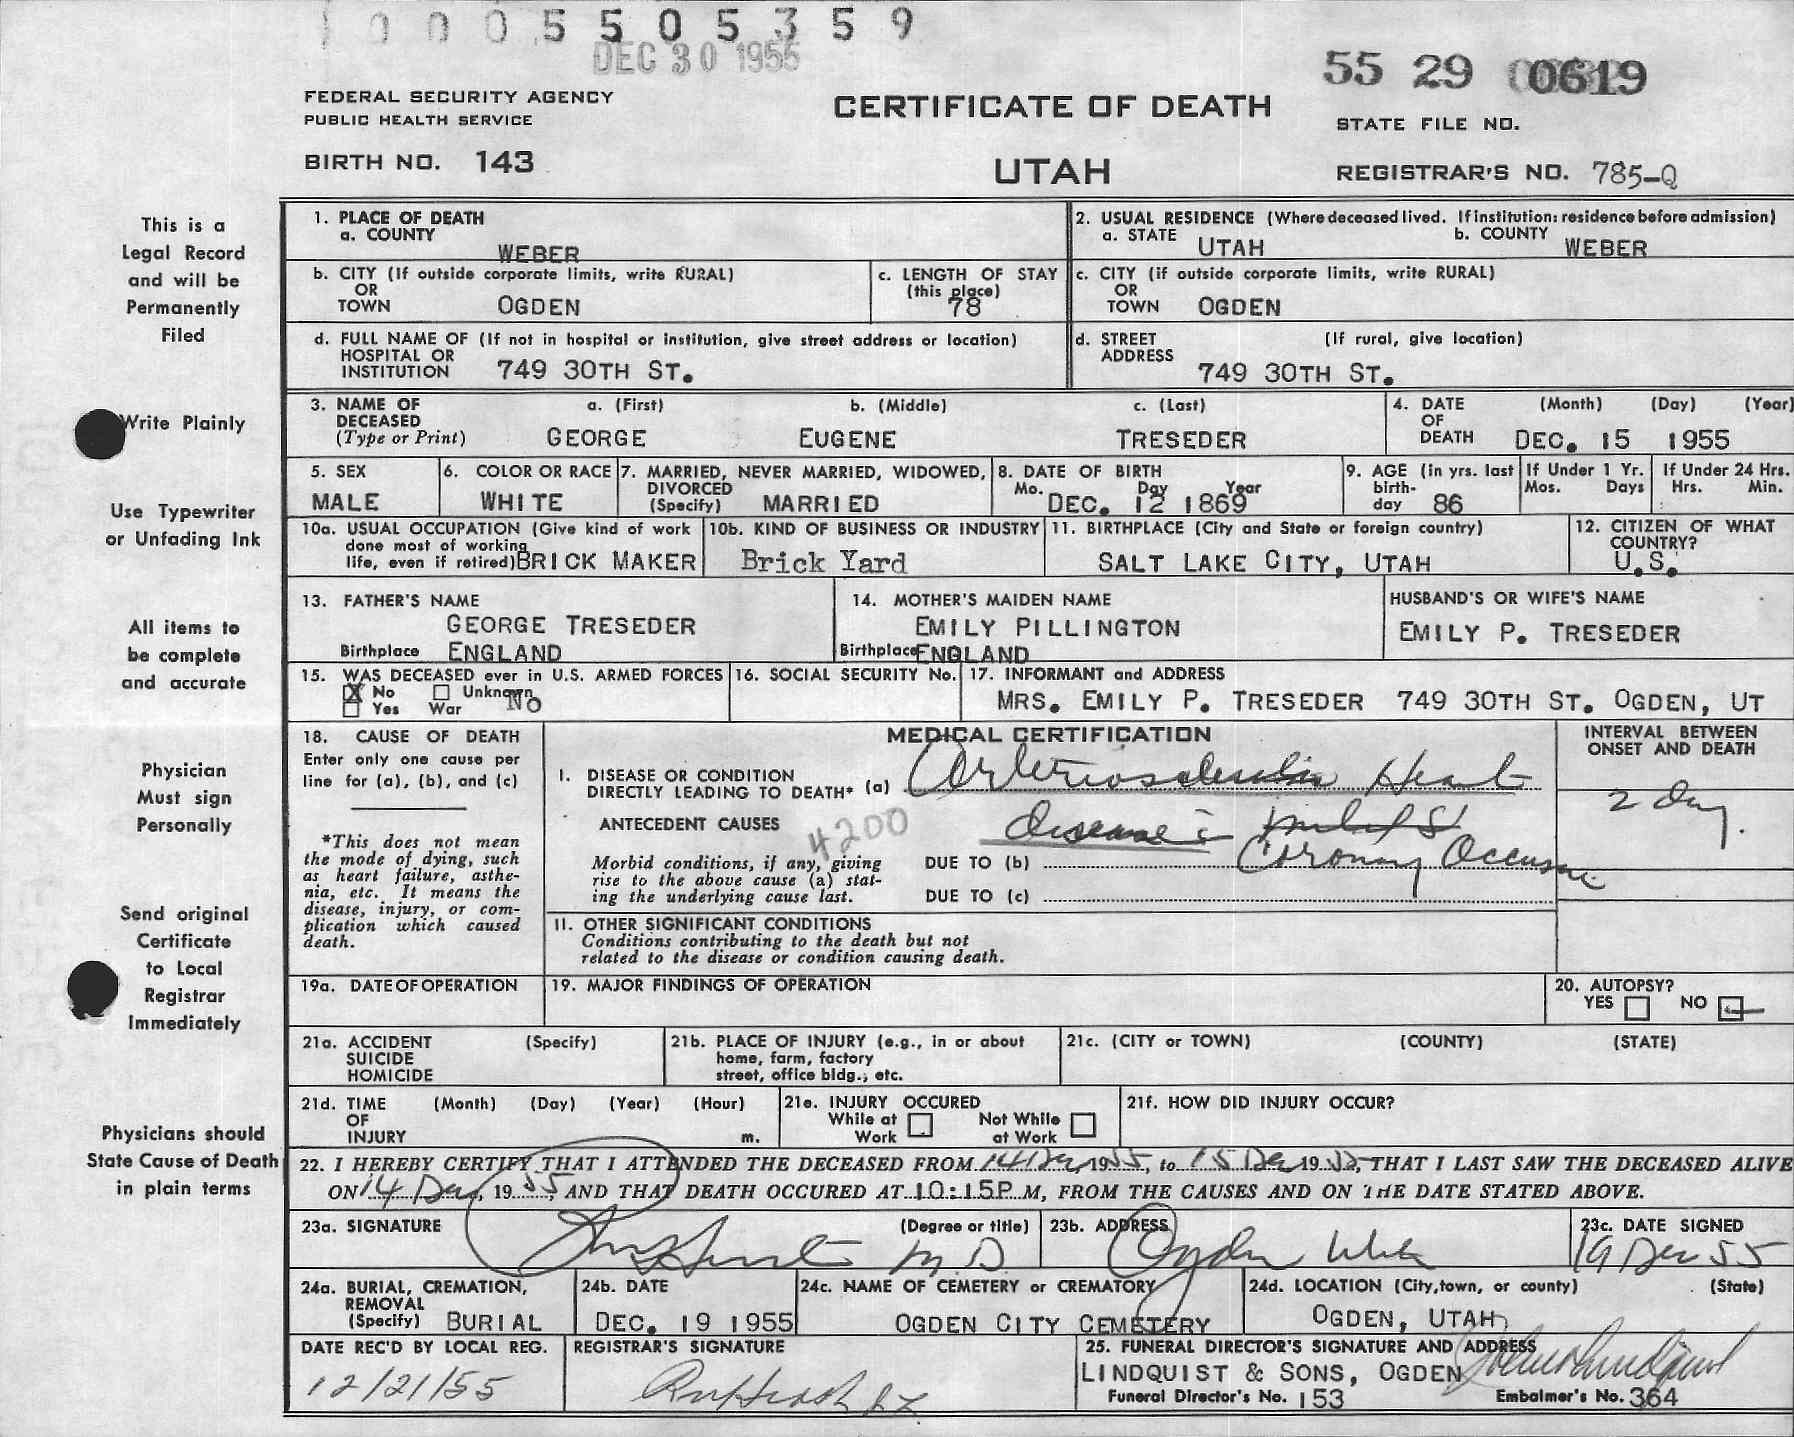 0 0 0 5 5 0 5 3 5 9
DEC 30 1955
55 29 0619
STATE FILE NO.
FEDERAL SECURITY AGENCY
PUBLIC HEALTH SERVICE
BIRTH NO. 143
CERTIFICATE OF DEATH
UTAH
REGISTRAR'S NO. 785-Q
This is a
Legal Record
and will be
Permanently
Filed
Write Plainly
Use Typewriter
or Unfading Ink
All items to
be complete
and accurate
Physician
Must sign
Personally
Send original
Certificate
to Local
Registrar
Immediately
Physicians should
State Cause of Death
in plain terms
1. PLACE OF DEATH
a. COUNTY
WEBER
2. USUAL RESIDENCE (Where deceased lived. If institution: residence before admission)
a. STATE UTAH b. COUNTY WEBER
b. CITY (If outside corporate limits, write RURAL)
OR
TOWN OGDEN
c. LENGTH OF STAY
(this place)
78
c. CITY (if outside corporate limits, write RURAL)
OR
TOWN OGDEN
d. FULL NAME OF (If not in hospital or institution, give street address or location)
HOSPITAL OR
INSTITUTION 749 30TH ST.
d. STREET (If rural, give location)
ADDRESS
749 30TH ST.
3. NAME OF a. (First) b. (Middle) c. (Last)
DECEASED
(Type or Print) GEORGE EUGENE TRESEDER
4. DATE (Month) (Day) (Year)
OF
DEATH DEC. 15 1955
5. SEX
MALE
6. COLOR OR RACE
WHITE
7. MARRIED, NEVER MARRIED, WIDOWED,
DIVORCED
(Specify) MARRIED
8. DATE OF BIRTH
Mo. Day Year
DEC. 12 1869
9. AGE (in yrs. last
birth-
day 86
If Under 1 Yr.
Mos. Days
If Under 24 Hrs.
Hrs. Min.
10a. USUAL OCCUPATION (Give kind of work
done most of working
life, even if retired) BRICK MAKER
10b. KIND OF BUSINESS OR INDUSTRY
Brick Yard
11. BIRTHPLACE (City and State or foreign country)
SALT LAKE CITY, UTAH
12. CITIZEN OF WHAT
COUNTRY?
U.S.
13. FATHER'S NAME
GEORGE TRESEDER
Birthplace ENGLAND
14. MOTHER'S MAIDEN NAME
EMILY PILLINGTON
Birthplace ENGLAND
HUSBAND'S OR WIFE'S NAME
EMILY P. TRESEDER
15. WAS DECEASED ever in U.S. ARMED FORCES
X No Unknown
Yes War No
16. SOCIAL SECURITY No.
17. INFORMANT and ADDRESS
MRS. EMILY P. TRESEDER 749 30TH ST. OGDEN, UT
18. CAUSE OF DEATH
Enter only one cause per
line for (a), (b), and (c)
*This does not mean
the mode of dying, such
as heart failure, asthe-
nia, etc. It means the
disease, injury, or com-
plication which caused
death.
MEDICAL CERTIFICATION
I. DISEASE OR CONDITION
DIRECTLY LEADING TO DEATH* (a) Arteriosclerotic Heart
ANTECEDENT CAUSES disease
4200
Morbid conditions, if any, giving
rise to the above cause (a) stat-
ing the underlying cause last.
DUE TO (b) Coronary Occlusion
DUE TO (c)
INTERVAL BETWEEN
ONSET AND DEATH
2 Day.
II. OTHER SIGNIFICANT CONDITIONS
Conditions contributing to the death but not
related to the disease or condition causing death.
19a. DATE OF OPERATION
19. MAJOR FINDINGS OF OPERATION
20. AUTOPSY?
YES NO
21a. ACCIDENT (Specify)
SUICIDE
HOMICIDE
21b. PLACE OF INJURY (e.g., in or about
home, farm, factory
street, office bldg., etc.
21c. (CITY or TOWN) (COUNTY) (STATE)
21d. TIME (Month) (Day) (Year) (Hour)
OF
INJURY m.
21e. INJURY OCCURED
While at Not While
Work at Work
21f. HOW DID INJURY OCCUR?
22. I HEREBY CERTIFY THAT I ATTENDED THE DECEASED FROM 14 Dec 1955, to 15 Dec 1955, THAT I LAST SAW THE DECEASED ALIVE
ON 14 Dec, 1955, AND THAT DEATH OCCURED AT 10:15P M, FROM THE CAUSES AND ON THE DATE STATED ABOVE.
23a. SIGNATURE (Degree or title)
M.D.
23b. ADDRESS
Ogden Utah
23c. DATE SIGNED
19 Dec 55
24a. BURIAL, CREMATION,
REMOVAL
(Specify) BURIAL
24b. DATE
DEC. 19 1955
24c. NAME OF CEMETERY or CREMATORY
OGDEN CITY CEMETERY
24d. LOCATION (City, town, or county) (State)
OGDEN, UTAH
DATE REC'D BY LOCAL REG.
12/21/55
REGISTRAR'S SIGNATURE
25. FUNERAL DIRECTOR'S SIGNATURE AND ADDRESS
LINDQUIST & SONS, OGDEN
Funeral Director's No. 153 Embalmer's No. 364